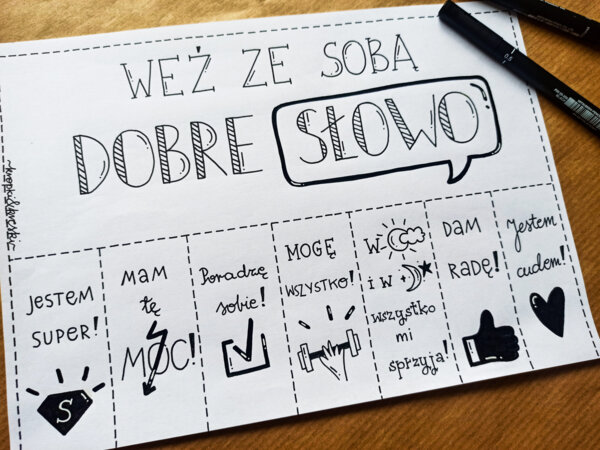 WEŹ ZE SOBĄ
DOBRE SŁOWO
JESTEM
SUPER!
S
MAM
tę
MOC!
Poradzę
sobie!
MOGĘ
WSZYSTKO!
W
i W
wszystko
mi
sprzyja!
DAM
RADĘ!
Jestem
cudem!
0.5